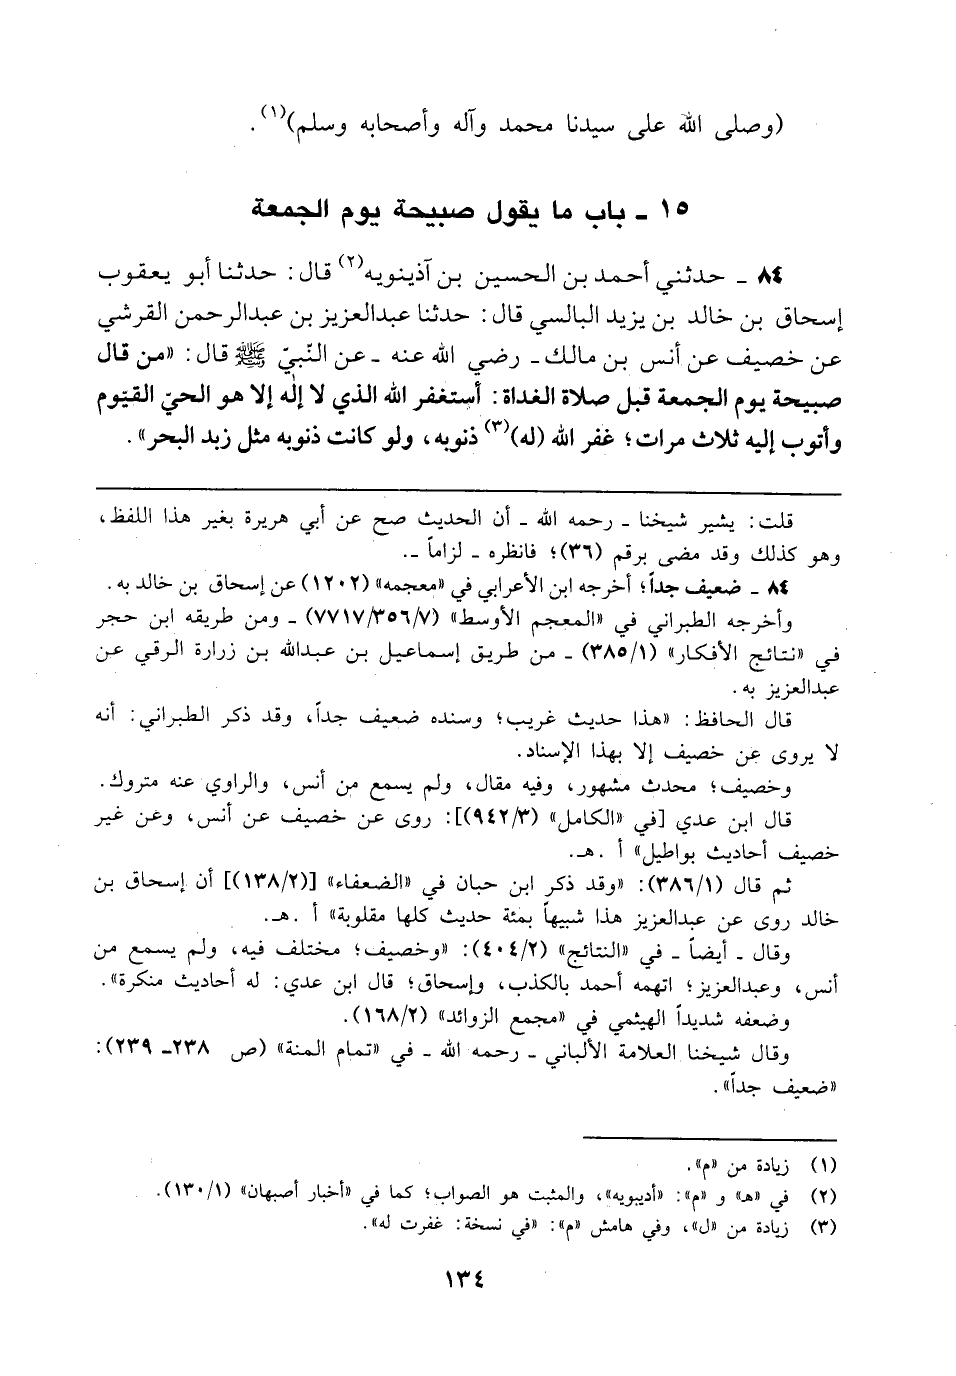 (وصلى الله على سيدنا محمد وآله وأصحابه وسلم)(١).
١٥ ـ باب ما يقول صبيحة يوم الجمعة
٨٤ ـ حدثني أحمد بن الحسين بن آذينويه(٢) قال: حدثنا أبو يعقوب
إسحاق بن خالد بن يزيد البالسي قال: حدثنا عبدالعزيز بن عبدالرحمن القرشي
عن خصيف عن أنس بن مالك ـ رضي الله عنه ـ عن النّبيّ ﷺ قال: «من قال
صبيحة يوم الجمعة قبل صلاة الغداة: أستغفر الله الذي لا إله إلا هو الحيّ القيّوم
وأتوب إليه ثلاث مرات؛ غفر الله (له)(٣) ذنوبه، ولو كانت ذنوبه مثل زبد البحر».
قلت: يشير شيخنا ـ رحمه الله ـ أن الحديث صح عن أبي هريرة بغير هذا اللفظ،
وهو كذلك وقد مضى برقم (٣٦)؛ فانظره ـ لزاماً ـ.
٨٤ ـ ضعيف جداً؛ أخرجه ابن الأعرابي في «معجمه» (١٢٠٢) عن إسحاق بن خالد به.
وأخرجه الطبراني في «المعجم الأوسط» (٧/٣٥٦/٧٧١٧) ـ ومن طريقه ابن حجر
في «نتائج الأفكار» (١/٣٨٥) ـ من طريق إسماعيل بن عبدالله بن زرارة الرقي عن
عبدالعزيز به.
قال الحافظ: «هذا حديث غريب؛ وسنده ضعيف جداً، وقد ذكر الطبراني: أنه
لا يروى عن خصيف إلا بهذا الإسناد.
وخصيف؛ محدث مشهور، وفيه مقال، ولم يسمع من أنس، والراوي عنه متروك.
قال ابن عدي [في «الكامل» (٣/٩٤٢)]: روى عن خصيف عن أنس، وعن غير
خصيف أحاديث بواطيل» أ .هـ.
ثم قال (١/٣٨٦): «وقد ذكر ابن حبان في «الضعفاء» [(٢/١٣٨)] أن إسحاق بن
خالد روى عن عبدالعزيز هذا شبيهاً بمئة حديث كلها مقلوبة» أ .هـ.
وقال ـ أيضاً ـ في «النتائج» (٢/٤٠٤): «وخصيف؛ مختلف فيه، ولم يسمع من
أنس، وعبدالعزيز؛ اتهمه أحمد بالكذب، وإسحاق؛ قال ابن عدي: له أحاديث منكرة».
وضعفه شديداً الهيثمي في «مجمع الزوائد» (٢/١٦٨).
وقال شيخنا العلامة الألباني ـ رحمه الله ـ في «تمام المنة» (ص ٢٣٨ـ ٢٣٩):
«ضعيف جداً».
(١) زيادة من «م».
(٢) في «هـ» و «م»: «أديبويه»، والمثبت هو الصواب؛ كما في «أخبار أصبهان» (١/١٣٠).
(٣) زيادة من «ل»، وفي هامش «م»: «في نسخة: غفرت له».
١٣٤